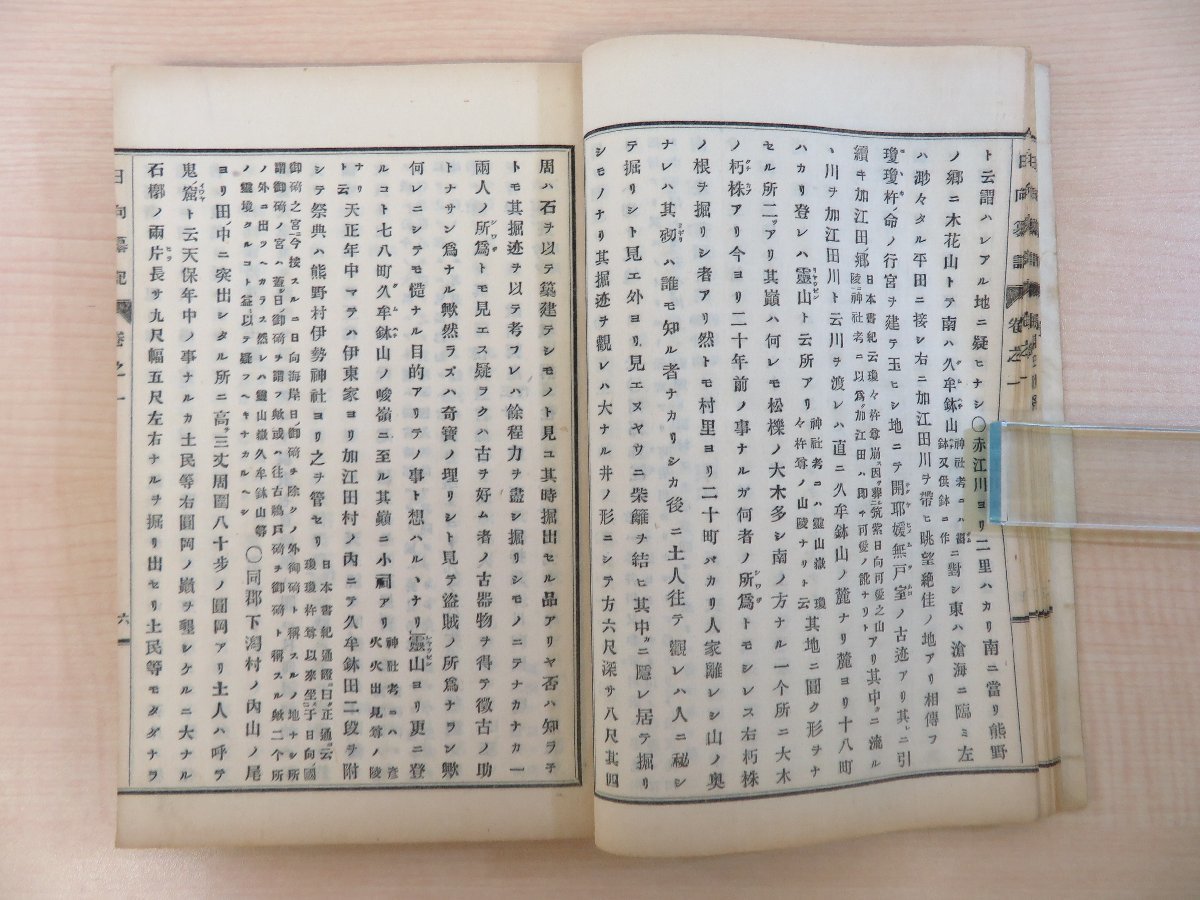 ト云謂ハレアル地ニ疑ヒナシ〇赤江川ヨリ二里ハカリ南ニ當リ熊野
ノ郷ニ木花山トテ南ハ久牟鉢山神社考ニハ福鉢又俄鉢ニ作ニ對シ東ハ滄海ニ臨ミ左
ハ渺々タル平田ニ接シ右ニ加江田川ヲ帶ヒ眺望絶佳ノ地アリ相傳フ
瓊瓊杵命ノ行宮ヲ建テ玉ヒシ地ニテ開耶媛無戸室ノ古迹アリ其ニ引
續キ加江田郷日本書紀云瓊々杵尊崩因葬筑紫日向可愛之山陵神社考ニ以為加江田ハ即チ可愛ノ訛ナリトアリ其中ニ流ル
ヽ川ヲ加江田川ト云川ヲ渡レハ直ニ久牟鉢山ノ麓ナリ麓ヨリ十八町
ハカリ登レハ靈山ト云所アリ神社考ニハ靈山嶽瓊々杵尊ノ山陵ナリト云其地ニ圓ク形ヲナ
セル所二ツアリ其巓ハ何レモ松櫟ノ大木多シ南ノ方ナル一个所ニ大木
ノ朽株アリ今ヨリ二十年前ノ事ナルガ何者ノ所爲トモシレス右朽株
ノ根ヲ掘リシ者アリ然トモ村里ヨリ二十町バカリ人家離レシ山ノ奥
ナレハ其砌ハ誰モ知ル者ナカリシカ後ニ土人往テ觀レハ人ニ秘シ
テ掘リシト見エ外ヨリ見エヌヤウニ柴籬ヲ結ヒ其中ニ隱レ居テ掘リ
シモノナリ其掘迹ヲ觀レハ大ナル井ノ形ニシテ方六尺深サ八尺其四
周ハ石ヲ以テ築建テシモノト見ユ其時掘出セル品アリヤ否ハ知ラ子
トモ其掘迹ヲ以テ考フレハ餘程力ヲ盡シ掘リシモノニテナカナカ一
兩人ノ所爲トモ見エス疑ラクハ古ヲ好ム者ノ古器物ヲ得テ徴古ノ助
トナサン爲ナル歟然ラズハ奇寶ノ埋リシト見テ盗賊ノ所爲ナラン歟
何レニシテモ慥ナル目的アリテノ事ト想ハルヽナリ靈山ヨリ更ニ登
ルコト七八町久牟鉢山ノ峻嶺ニ至ル其巓ニ小祠アリ神社考ニハ彦火火出見尊ノ陵
ナリト云天正年中マテハ伊東家ヨリ加江田村ノ内ニテ久牟鉢田二段ヲ附
シテ祭典ハ熊野村伊勢神社ヨリ之ヲ管セリ日本書紀通證曰正通云瓊瓊杵尊以來坐于日向國
御碕之宮今按スルニ日向海岸曰御碕ヲ除クノ外御碕ト稱スルノ地ナシ所
謂御碕ノ宮ハ蓋曰御碕ヲ謂フ歟或ハ往古鵜戸碕ヲ御碕ト稱スル歟二个所
ノ外ニ出ツヘカラス然レハ靈山嶽久牟鉢山等
ノ靈境タルコト益以テ疑フヘキナカルヘシ〇同郡下潟村ノ内山ノ尾
ヨリ田中ニ突出シタル所ニ高三丈周圍八十歩ノ圓岡アリ土人ハ呼テ
鬼窟ト云天保年中ノ事ナルカ土民等右圓岡ノ巓ヲ墾シケルニ大ナル
石槨ノ兩片長サ九尺幅五尺左右ナルヲ掘リ出セリ土民等モタダナラ
日向纂記 卷之一 六